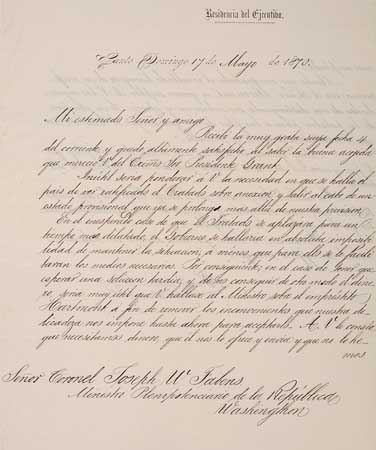 Residencia del Ejecutivo.
Santo Domingo 17 de Mayo de 1870.
Mi estimado Señor y amigo
Recibí la muy grata suya fecha 4
del corriente y quedo altamente satisfecho de saber la buena acogida
que mereció Vd del Exmo Sor Presidente Grant.
Inútil sería ponderar á Vd la necesidad en que se halla el
país de ver ratificado el Tratado sobre anexion, y salir al cabo de un
estado provisional que ya se prolonga mas allá de nuestra prevision.
En el inesperado caso de que el Tratado se aplazara para un
tiempo mas dilatado, el Gobierno se hallaria en absoluta imposibi-
lidad de mantener la situacion, á menos que para ello se le facili-
taran los medios necesarios. Por consiguiente, en el caso de tener que
esperar una solucion tardia, y de no conseguir de otro modo el dine-
ro, seria muy útil que Vd hablara al Ministro sobre el empréstito
Hartmont a fin de remover los inconvenientes que nuestra de-
licadeza nos impone hasta ahora para aceptarlo. A Vd le consta
que necesitamos dinero, que él nos lo ofrece y envia y que no lo he-
mos
Señor Coronel Joseph W. Fabens
Ministro Plenipotenciario de la República
Washington